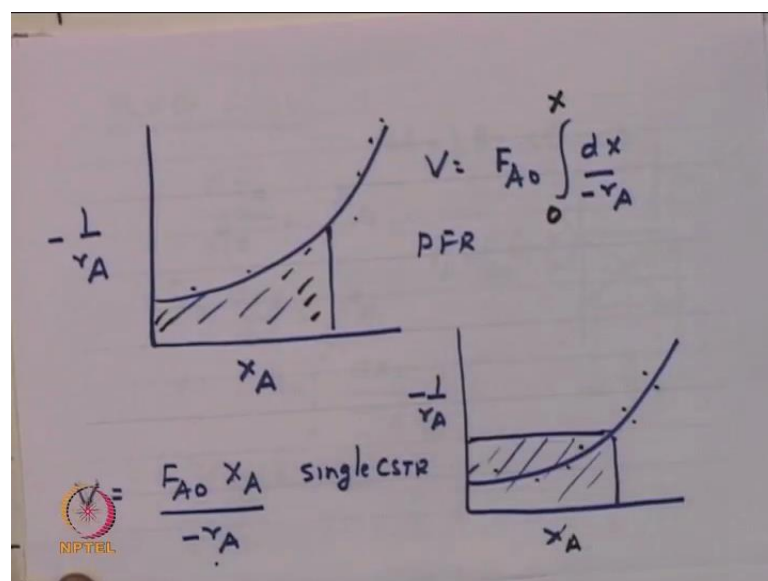 -1/rA
xA
V = FA0 ∫₀ˣ dx/-rA
PFR
-1/rA
xA
V = FA0 XA/-rA single CSTR
NPTEL